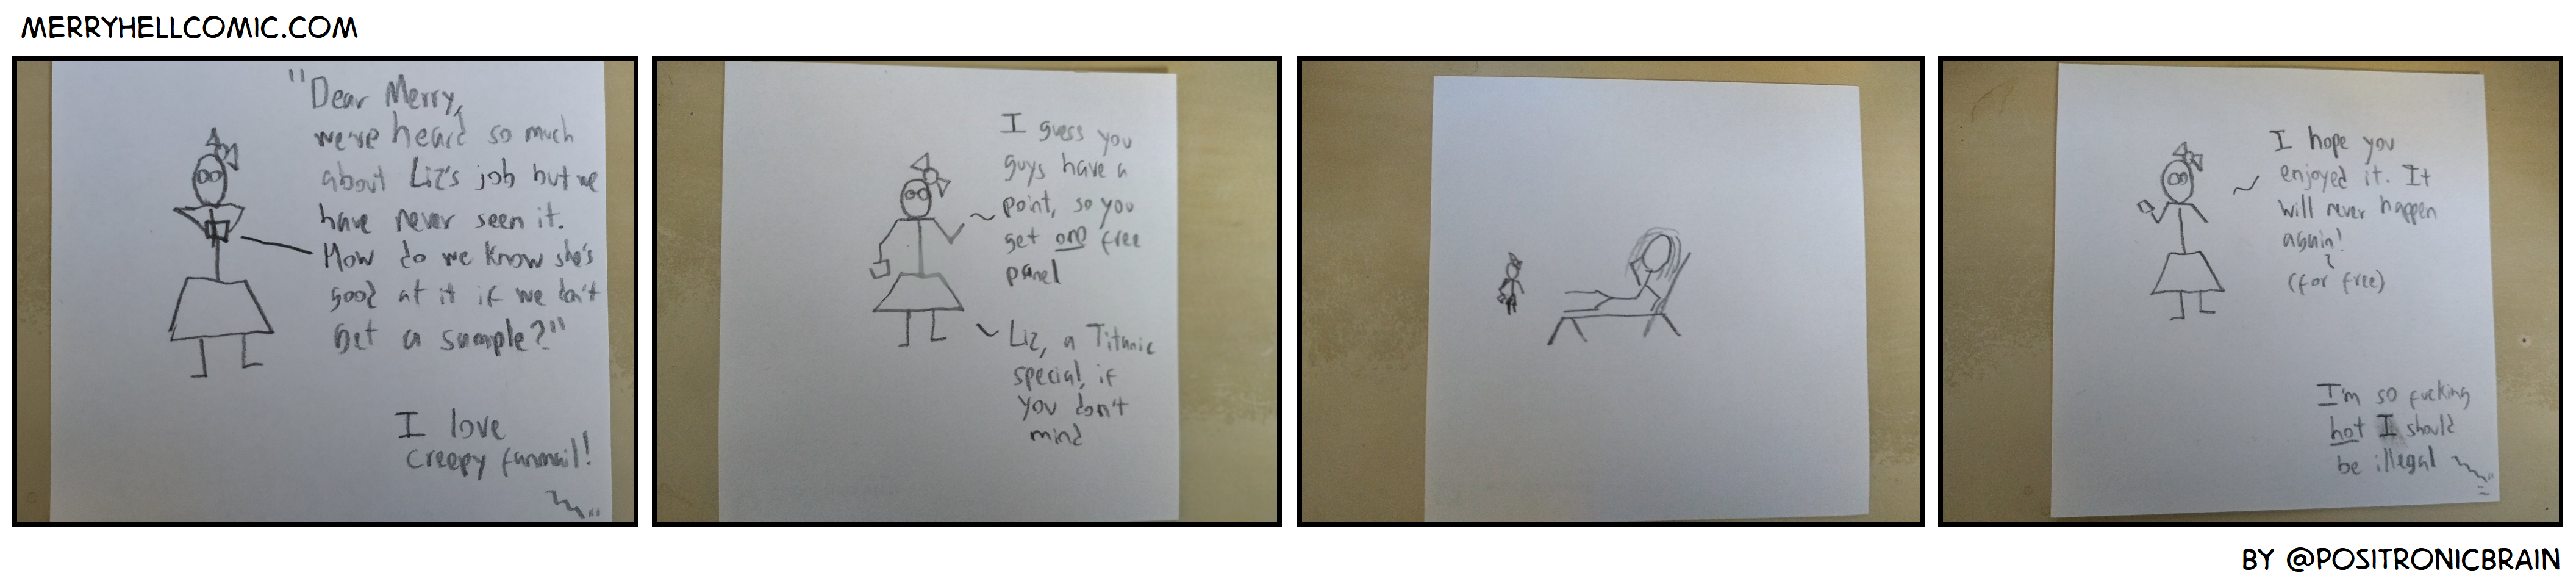 MERRYHELLCOMIC.COM
"Dear Merry,
we've heard so much
about Liz's job but we
have never seen it.
How do we know she's
good at it if we don't
get a sample?"
I love
creepy fanmail!
I guess you
guys have a
point, so you
get one free
panel
Liz, a Titanic
special, if
you don't
mind
I hope you
enjoyed it. It
will never happen
again!
(for free)
I'm so fucking
hot I should
be illegal
BY @POSITRONICBRAIN